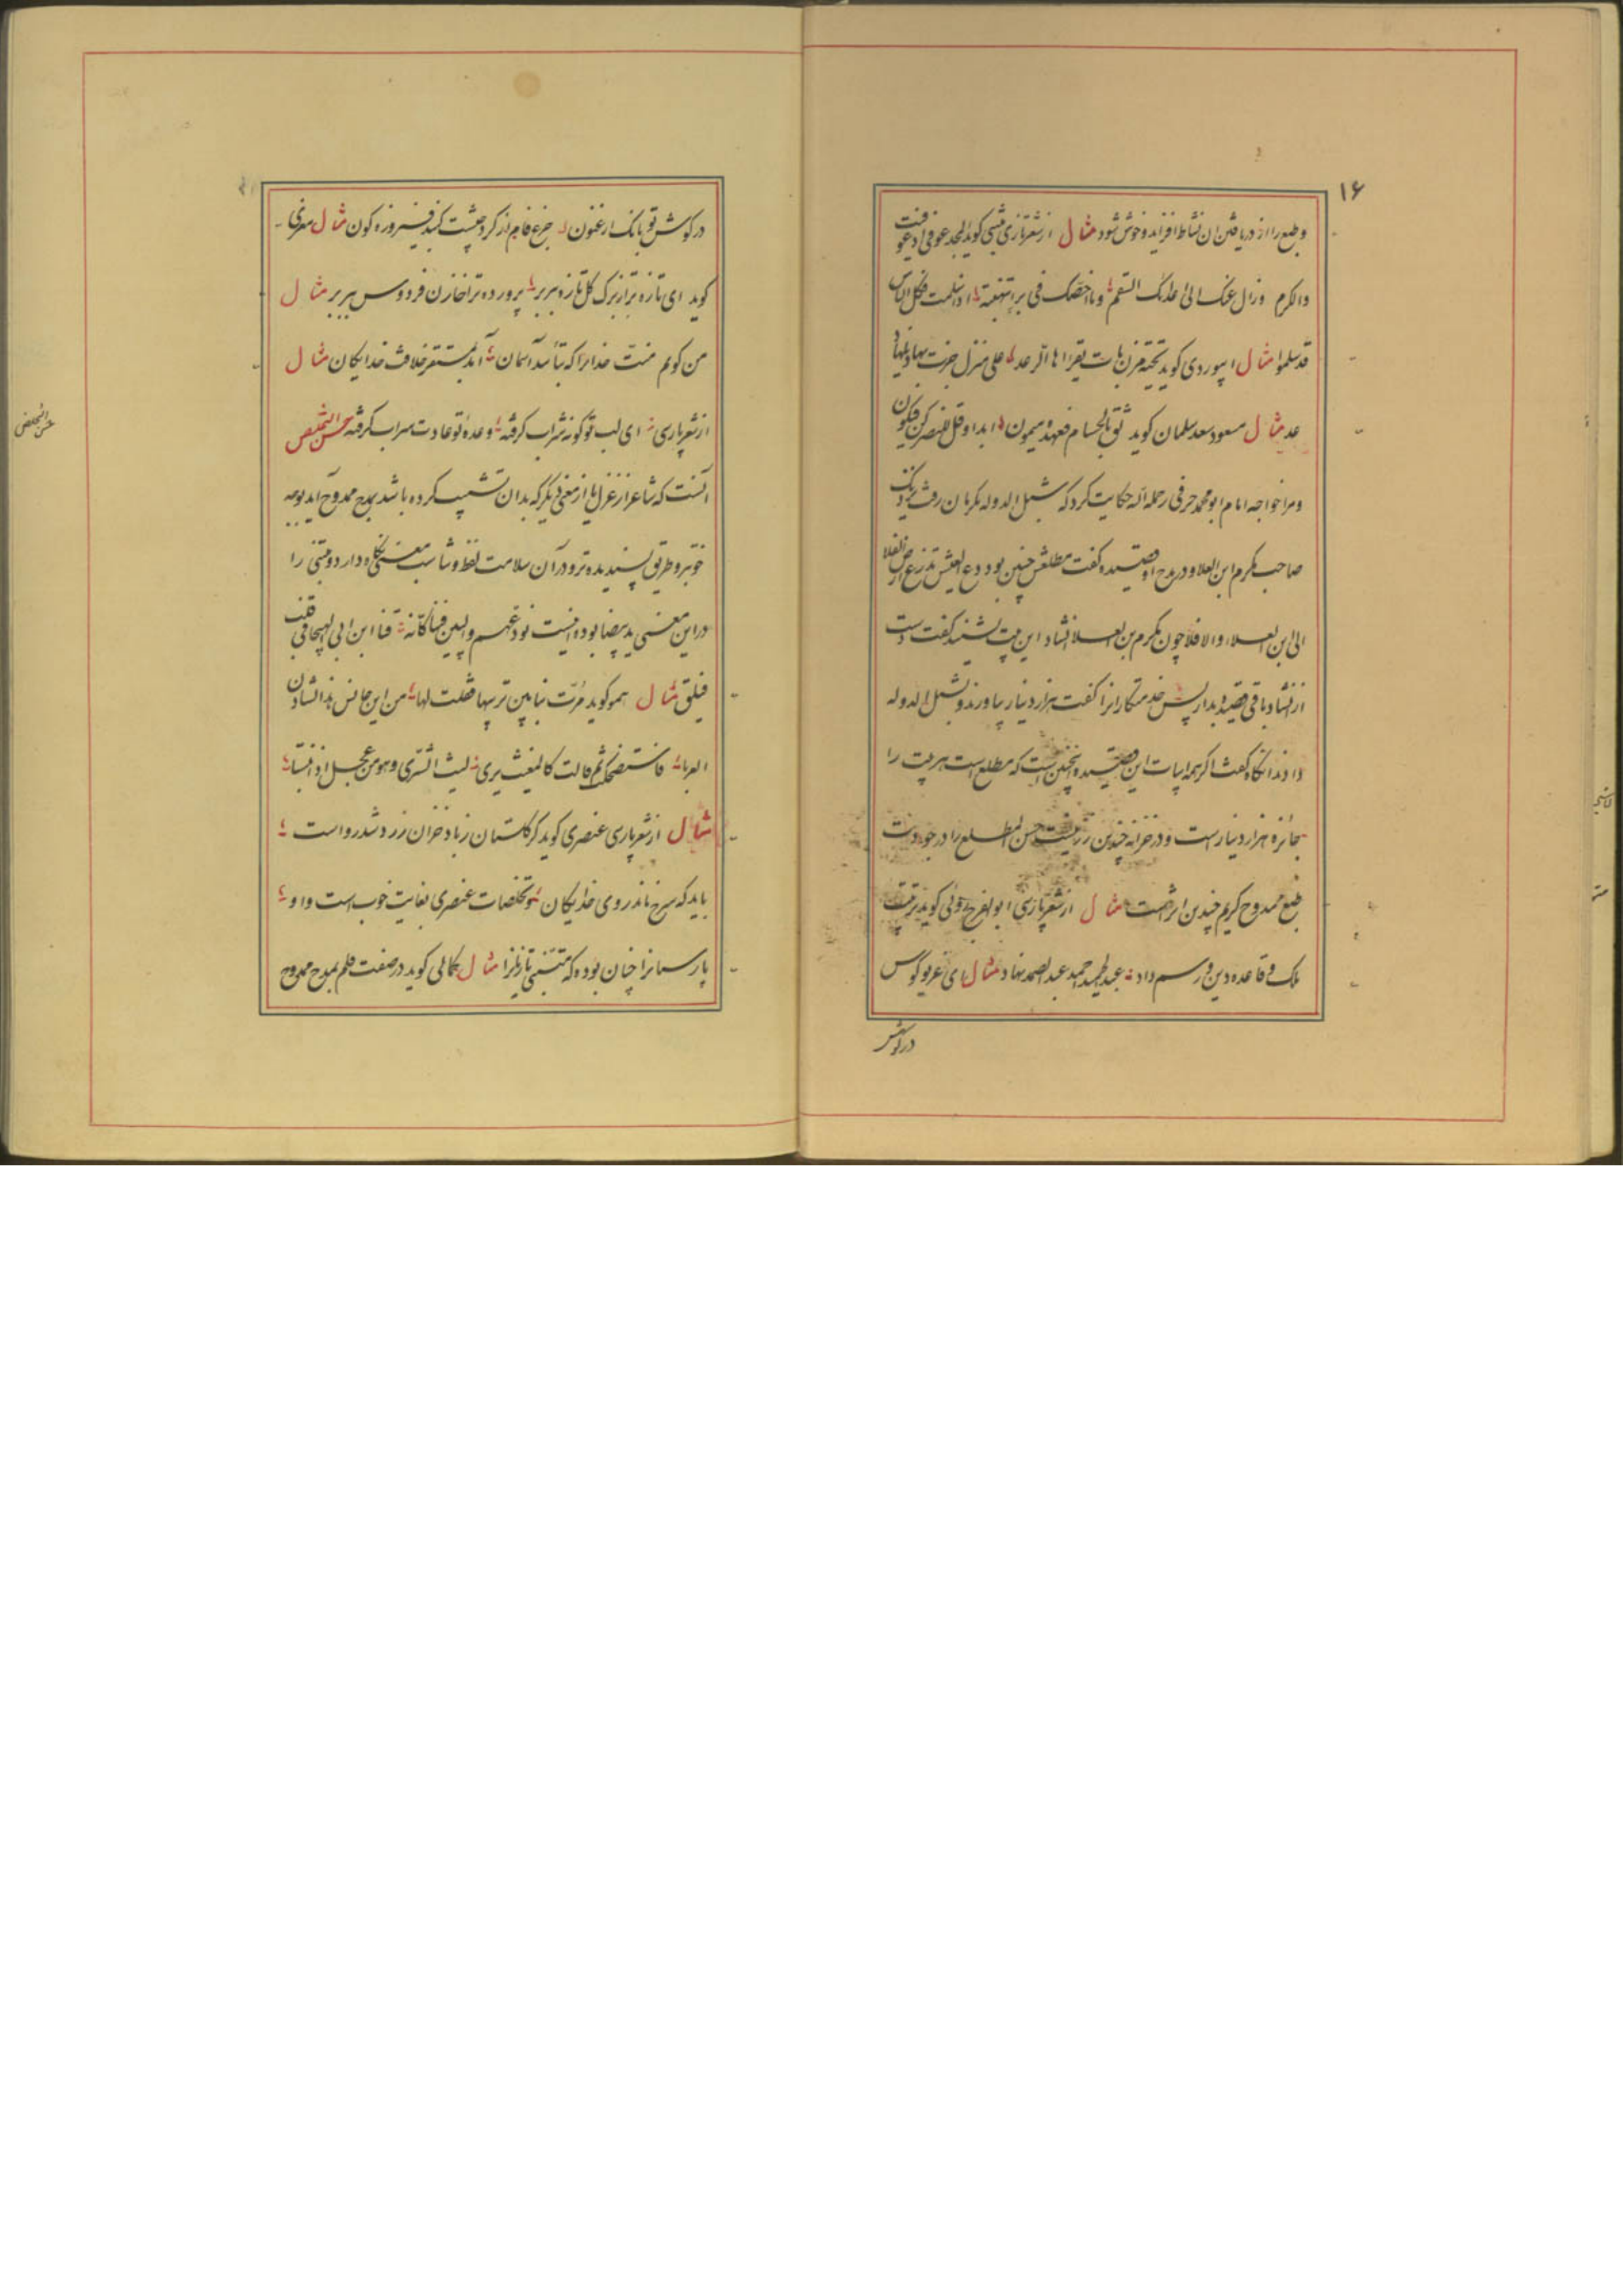 ۱۶
وطبع را از دریافتن آن نشاط افزاید و خوش شود مثال از شعر تازی متنبی کوید المجد عوفی اذ عوفیت
والکرم وزال عنک الی اعدائک السقم وما اخصک فی برء بتهنئة اذا سلمت فکل الناس
قد سلموا مثال ابیوردی کوید تحیة مزن بات یقراها الرعد علی منزل جرت بها ذیلها
عد مثال مسعود سعد سلمان کوید ثق بالحسام فعهده میمون ابدا وقل للنصر کن فیکون
ومرا خواجه امام ابو محمد خرقی رحمه الله حکایت کرد که شبل الدوله بکرمان رفت نزدیک
صاحب مکرم ابن العلا و در مدح او قصیده کفت مطلعش چنین بود دع العیش تذرع عرض الفلا
الی ابن العلاء والا فلا چون مکرم بن العلا انشاد این بیت بشنید کفت دست
از انشاد باقی قصیده بدار پس خدمتکار انرا کفت هزار دینار بیاورند و بشبل الدوله
دادند آنکاه کفت اکر همه ابیات این قصیده همچنین است که مطلع است هر بیت را
بجائزه هزار دینار است و در خزانه چندین زر نیست حسن المطلع را در جودت
طبع ممدوح کریم چندین اثر است مثال از شعر پارسی ابو الفرج رونی کوید ترتیب
ملک و قاعده دین و رسم داد عبد الحمید احمد عبد الصمد نهاد مثال ای غریو کوس
در کوش
در کوش تو بانک ارغنون جزع فام از کرد جیشت کنبد فیروزه کون مثال معزی
کوید ای تازه تر از برک کل تازه ببر بر پرورده ترا خازن فردوس ببر بر مثال
من کویم منت خدایرا که بتأیید آسمان آمد بمستقر خلافت خدایکان مثال
از شعر پارسی ای لب تو کونه شراب کرفته وعده تو عادت سراب کرفته حسن التخلص
آنست که شاعر از غزل یا از معنی دیکر که بدان تشبیب کرده باشد بمدح ممدوح آید بوجه
خوبتر و طریق پسندیده تر و در آن سلامت لفظ و مناسبت معنی نکاه دارد و متنبی را
در این معنی ید بیضا بوده است نودعهم والبین فینا کانه قنا ابن ابی الهیجا فی قلب
فیلق مثال همو کوید مرت بنا بین تربیها فقلت لها من این جانس هذا الشادن
العربا فاستضحکت ثم قالت کالمغیث یری لیث الشری وهو من عجل اذا انتسبا
مثال از شعر پارسی عنصری کوید کر کلستان ز باد خزان زرد شد رواست
باید که سرخ ماند روی خدایکان و تخلصات عنصری بغایت خوب است و او
پارسیانرا چنان بوده که متنبی تازیانرا مثال کمالی کوید در صفت قلم بمدح ممدوح
حسن التخلص